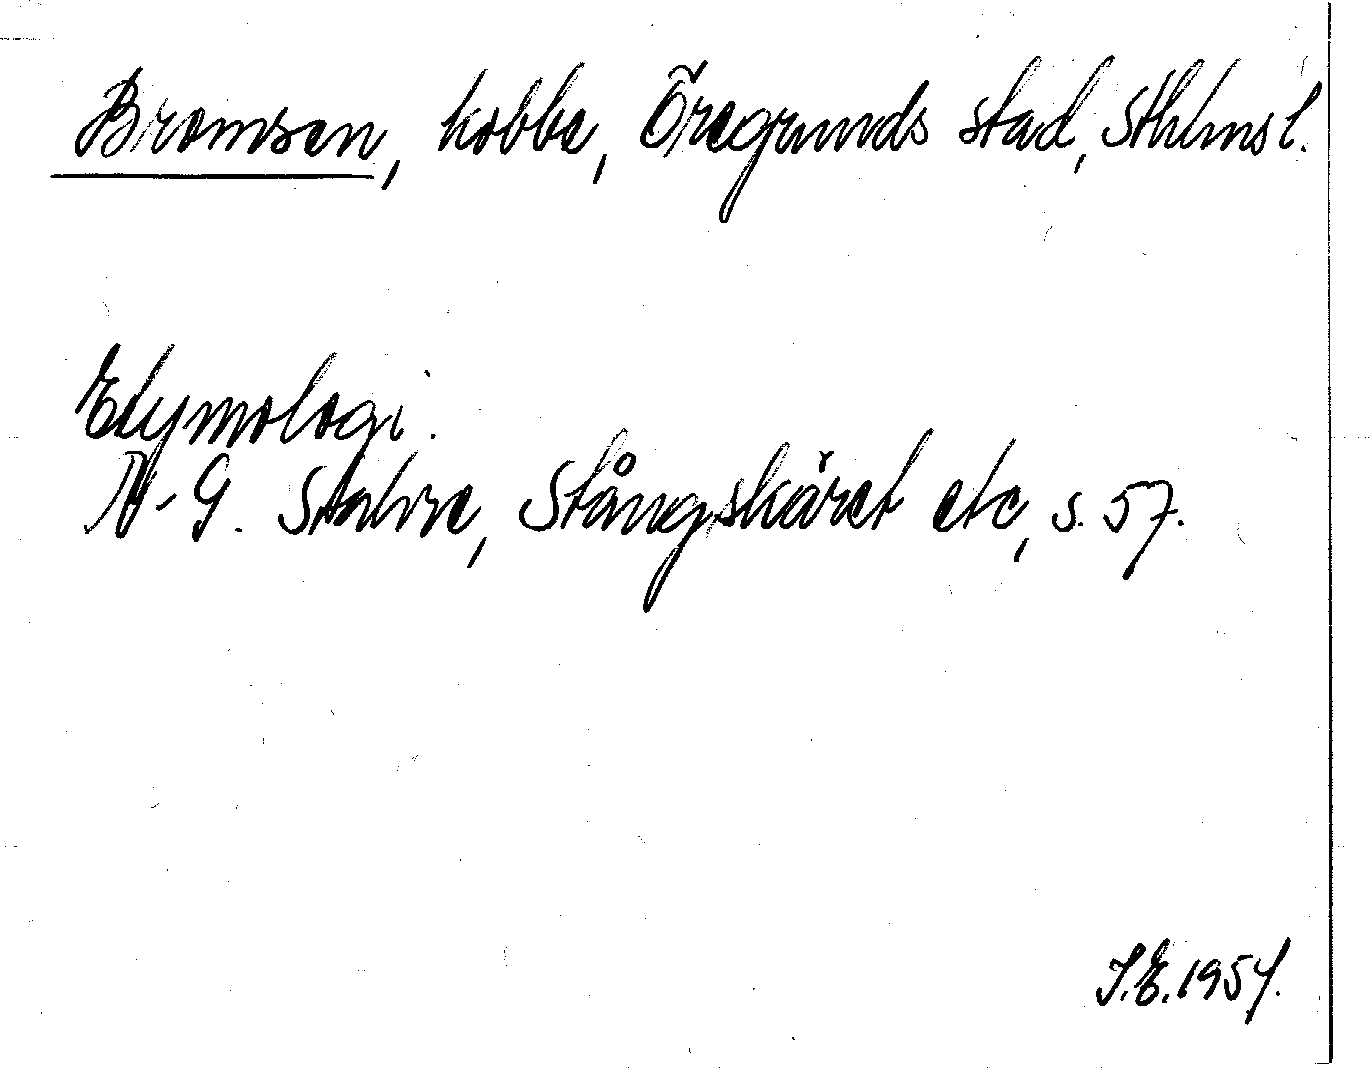 Bromsen, kobbe, Öregrunds stad, Sthlms l.
Etymologi.
N-G. Stahre, Stångskäret etc, s. 57.
S.E. 1954.